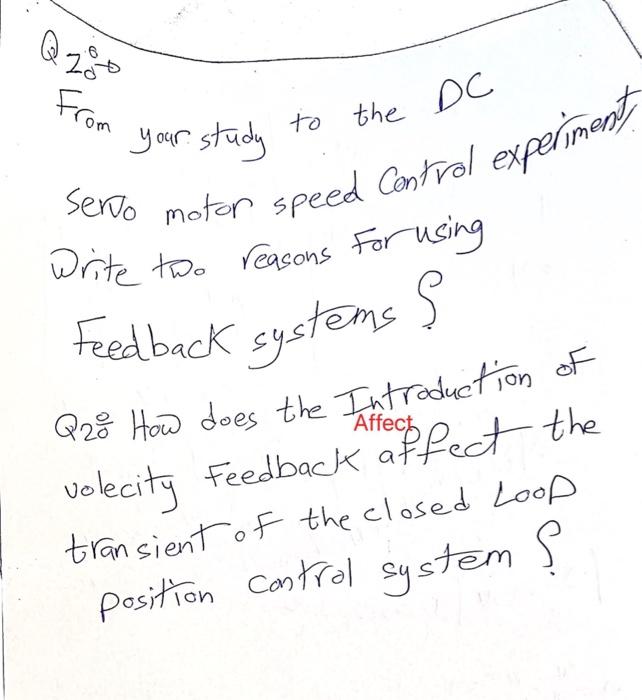 Q2:-
From your study to the DC
servo motor speed Control experiment,
Write two reasons For using
Feedback systems ?
Q2: How does the Introduction of
Affect
volecity Feedback affect the
transient of the closed Loop
position control system ?